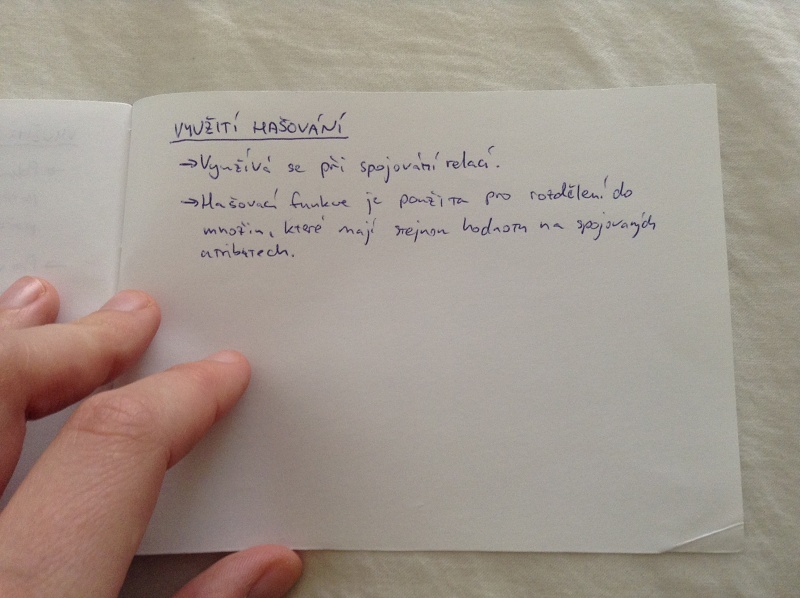 VYUŽITÍ HAŠOVÁNÍ
→Využívá se při spojování relací.
→Hašovací funkce je použita pro rozdělení do
množin, které mají stejnou hodnotu na spojovaných
atributech.